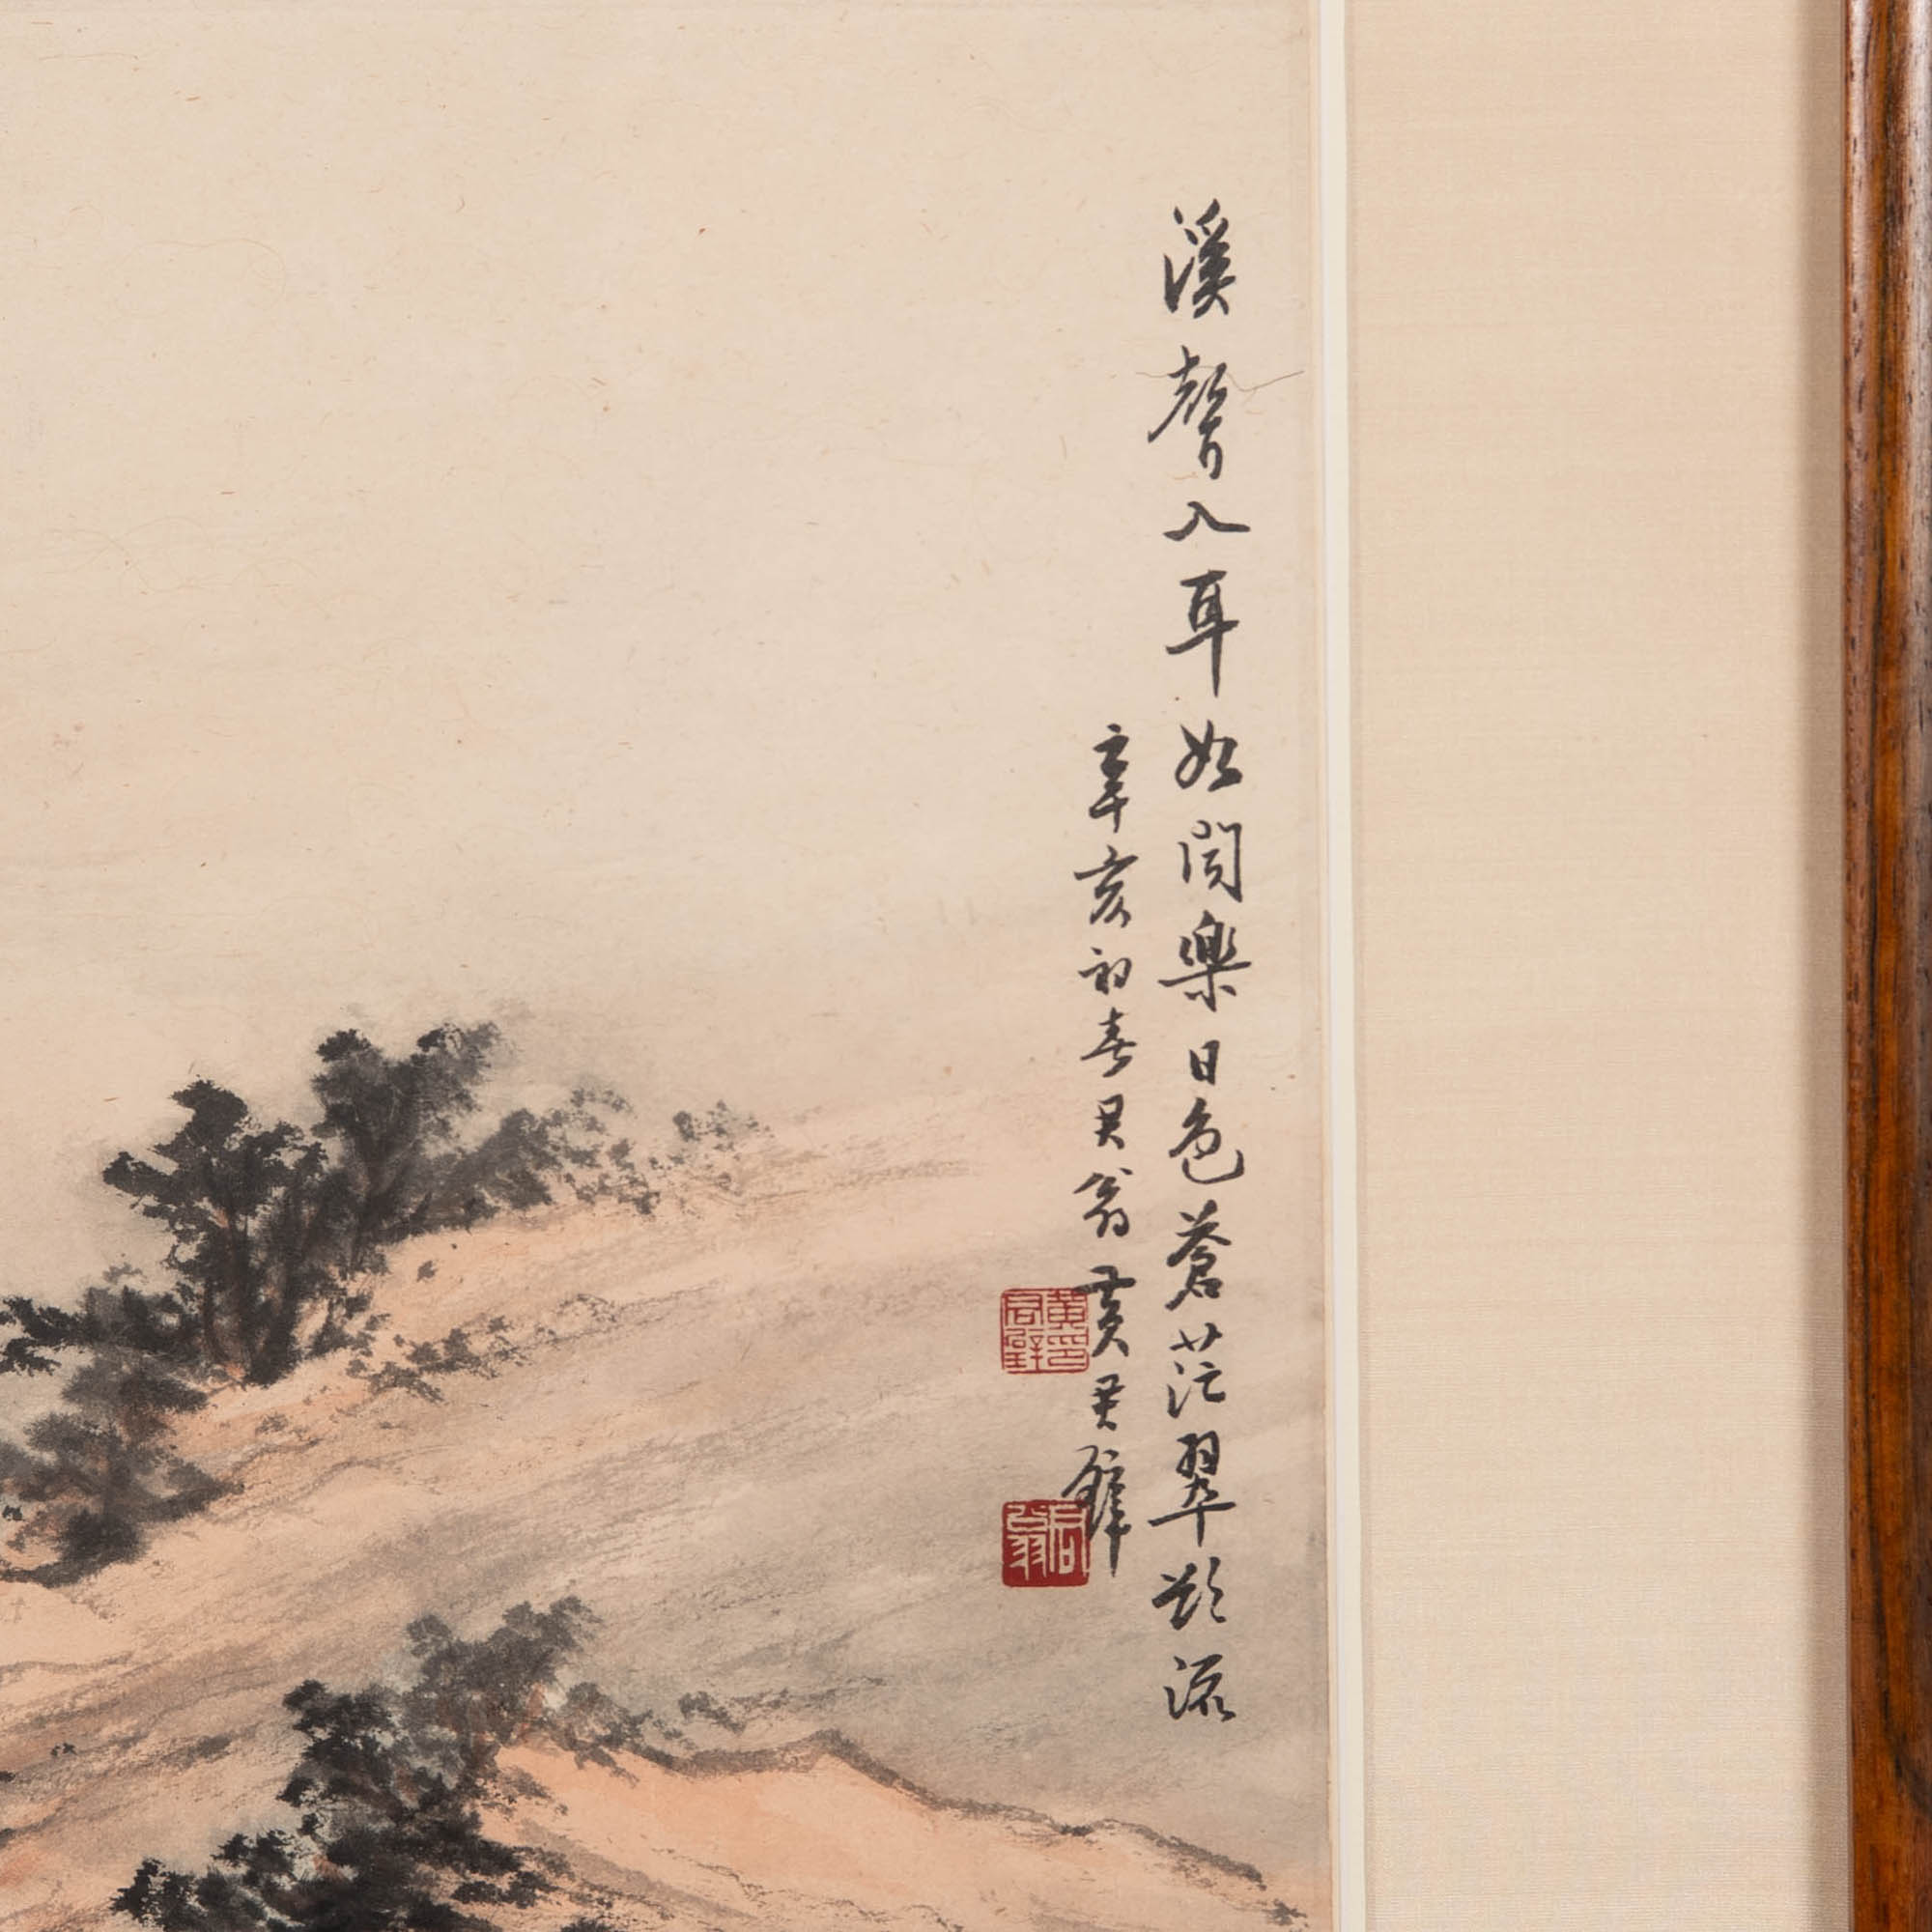 溪聲入耳如聞樂日色蒼茫翠欲流
辛亥初春君翁黃君璧
黃君璧印
君翁